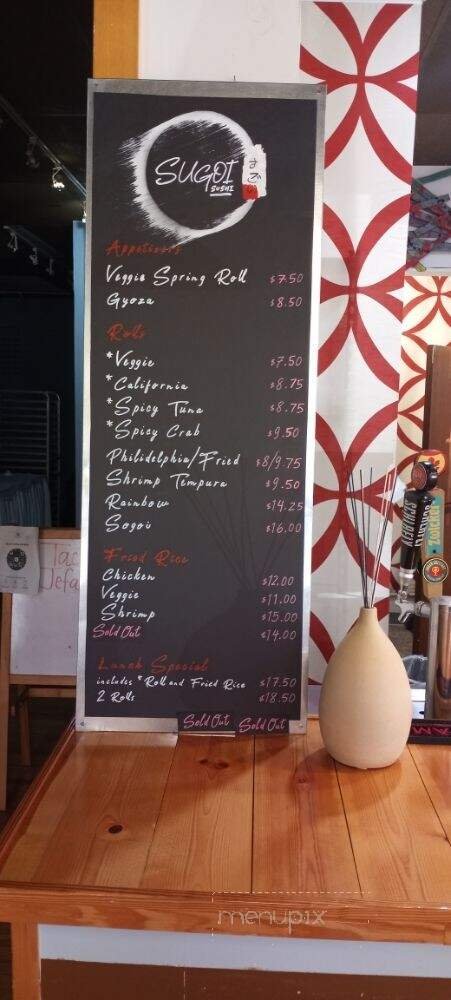 SUGOI
SUSHI
Appetizers
Veggie Spring Roll $7.50
Gyoza $8.50
Rolls
*Veggie $7.50
*California $8.75
*Spicy Tuna $8.75
*Spicy Crab $9.50
Philidelphia/Fried $8/9.75
Shrimp Tempura $9.50
Rainbow $14.25
Sogoi $16.00
Fried Rice
Chicken $12.00
Veggie $11.00
Shrimp $15.00
Sold Out $14.00
Lunch Special
includes *Roll and Fried Rice $17.50
2 Rolls $18.50
Sold Out Sold Out
menupix